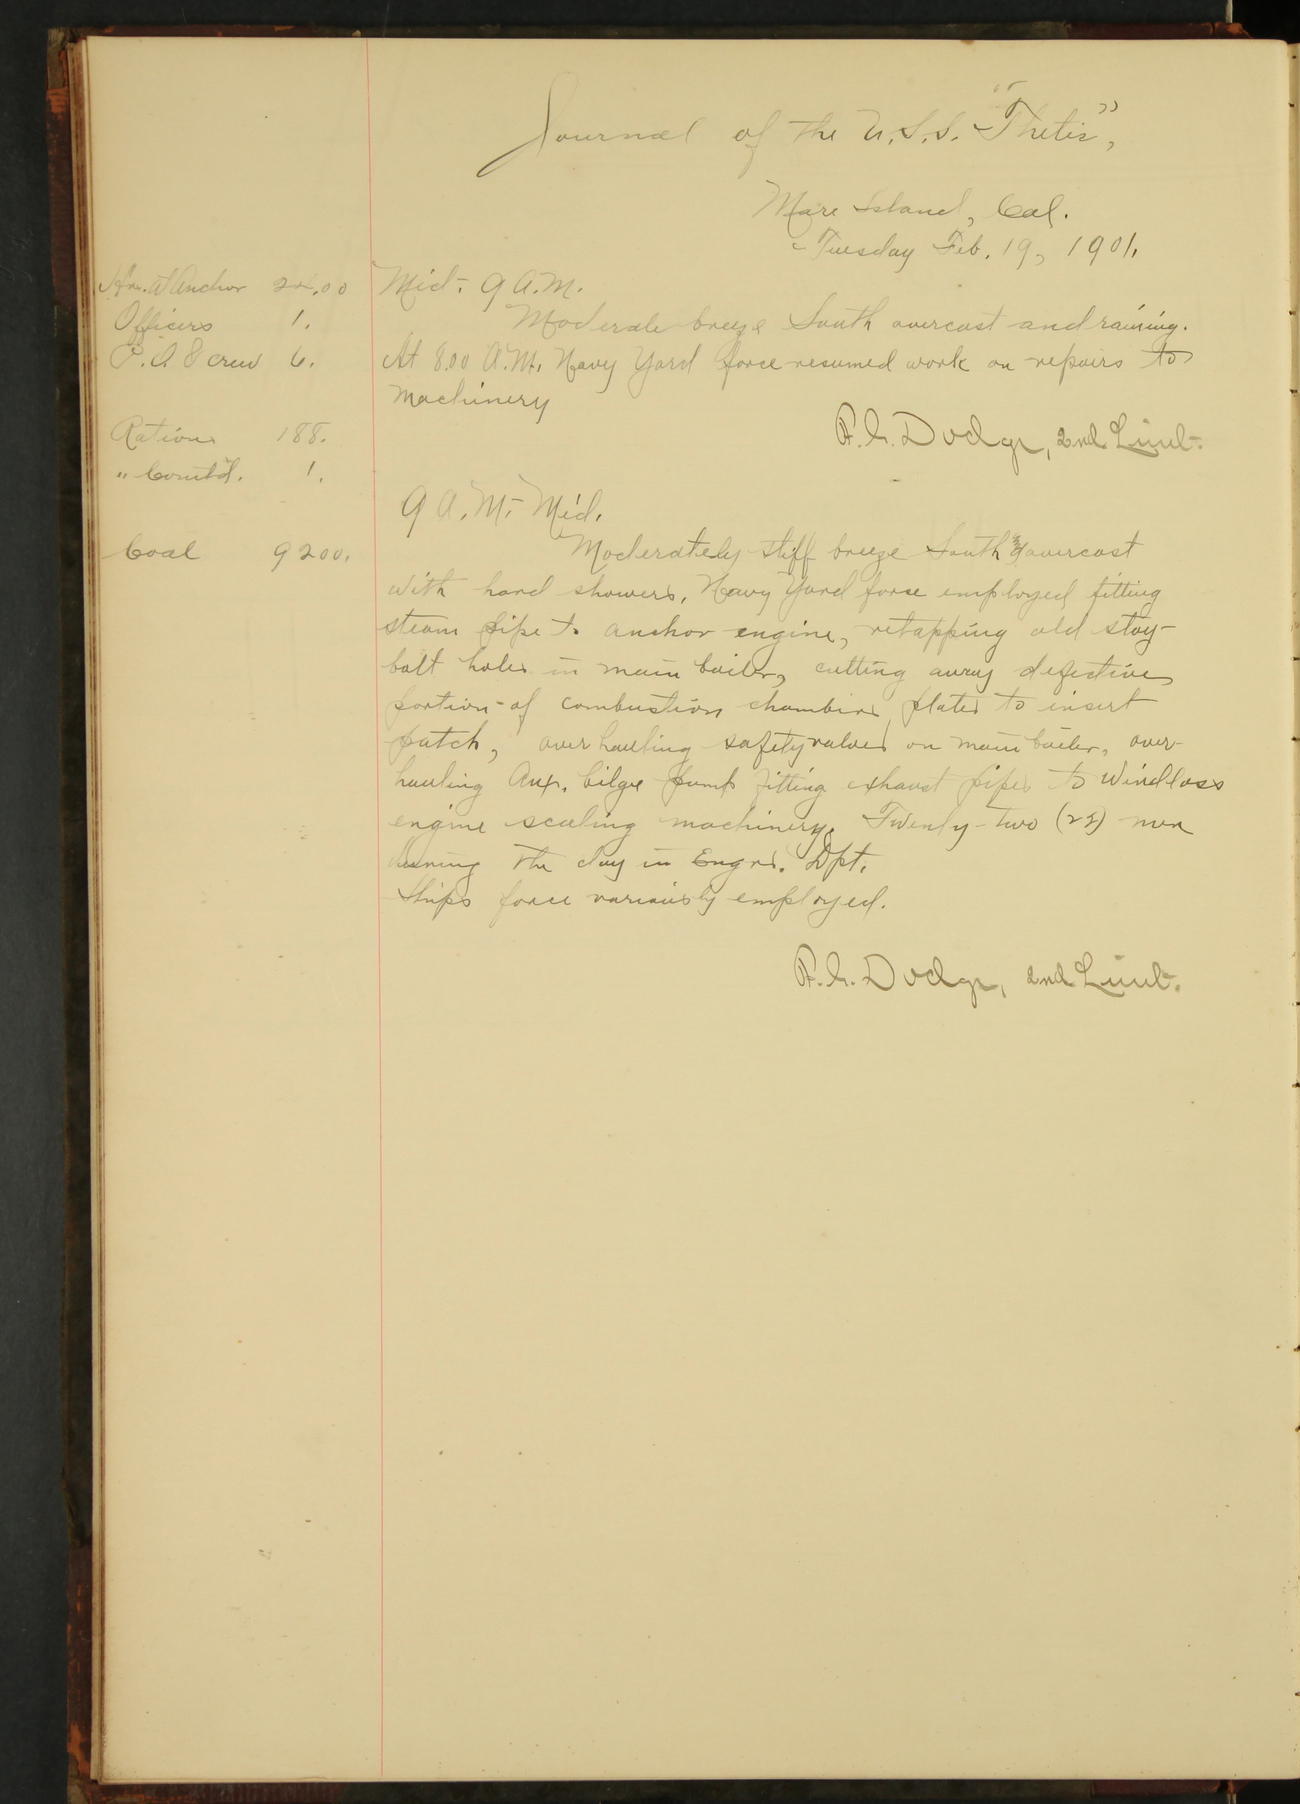 Journal of the U.S.S. "Thetis",
Mare Island, Cal.
Tuesday Feb. 19, 1901.
Hrs. at Anchor 24.00
Officers 1.
P.A. & crew 6.
Rations 188.
" Comt'd. 1.
Coal 9200.
Mid.- 9 A.M.
Moderate breeze South overcast and raining.
At 8.00 A.M. Navy Yard force resumed work on repairs to
machinery
Dodge, 2nd Lieut.
9 A.M.- Mid.
Moderately stiff breeze South overcast
with hard showers. Navy Yard force employed fitting
steam pipe to anchor engine, retapping old stay-
bolt holes in main boiler, cutting away defective
portion of combustion chambers plates to insert
patch, overhauling safety valves on main boiler, over-
hauling Aux. bilge pump fitting exhaust pipes to windlass
engine scaling machinery. Twenty-two (22) men
during the day in Engrs. Dpt.
Ships force variously employed.
Dodge, 2nd Lieut.